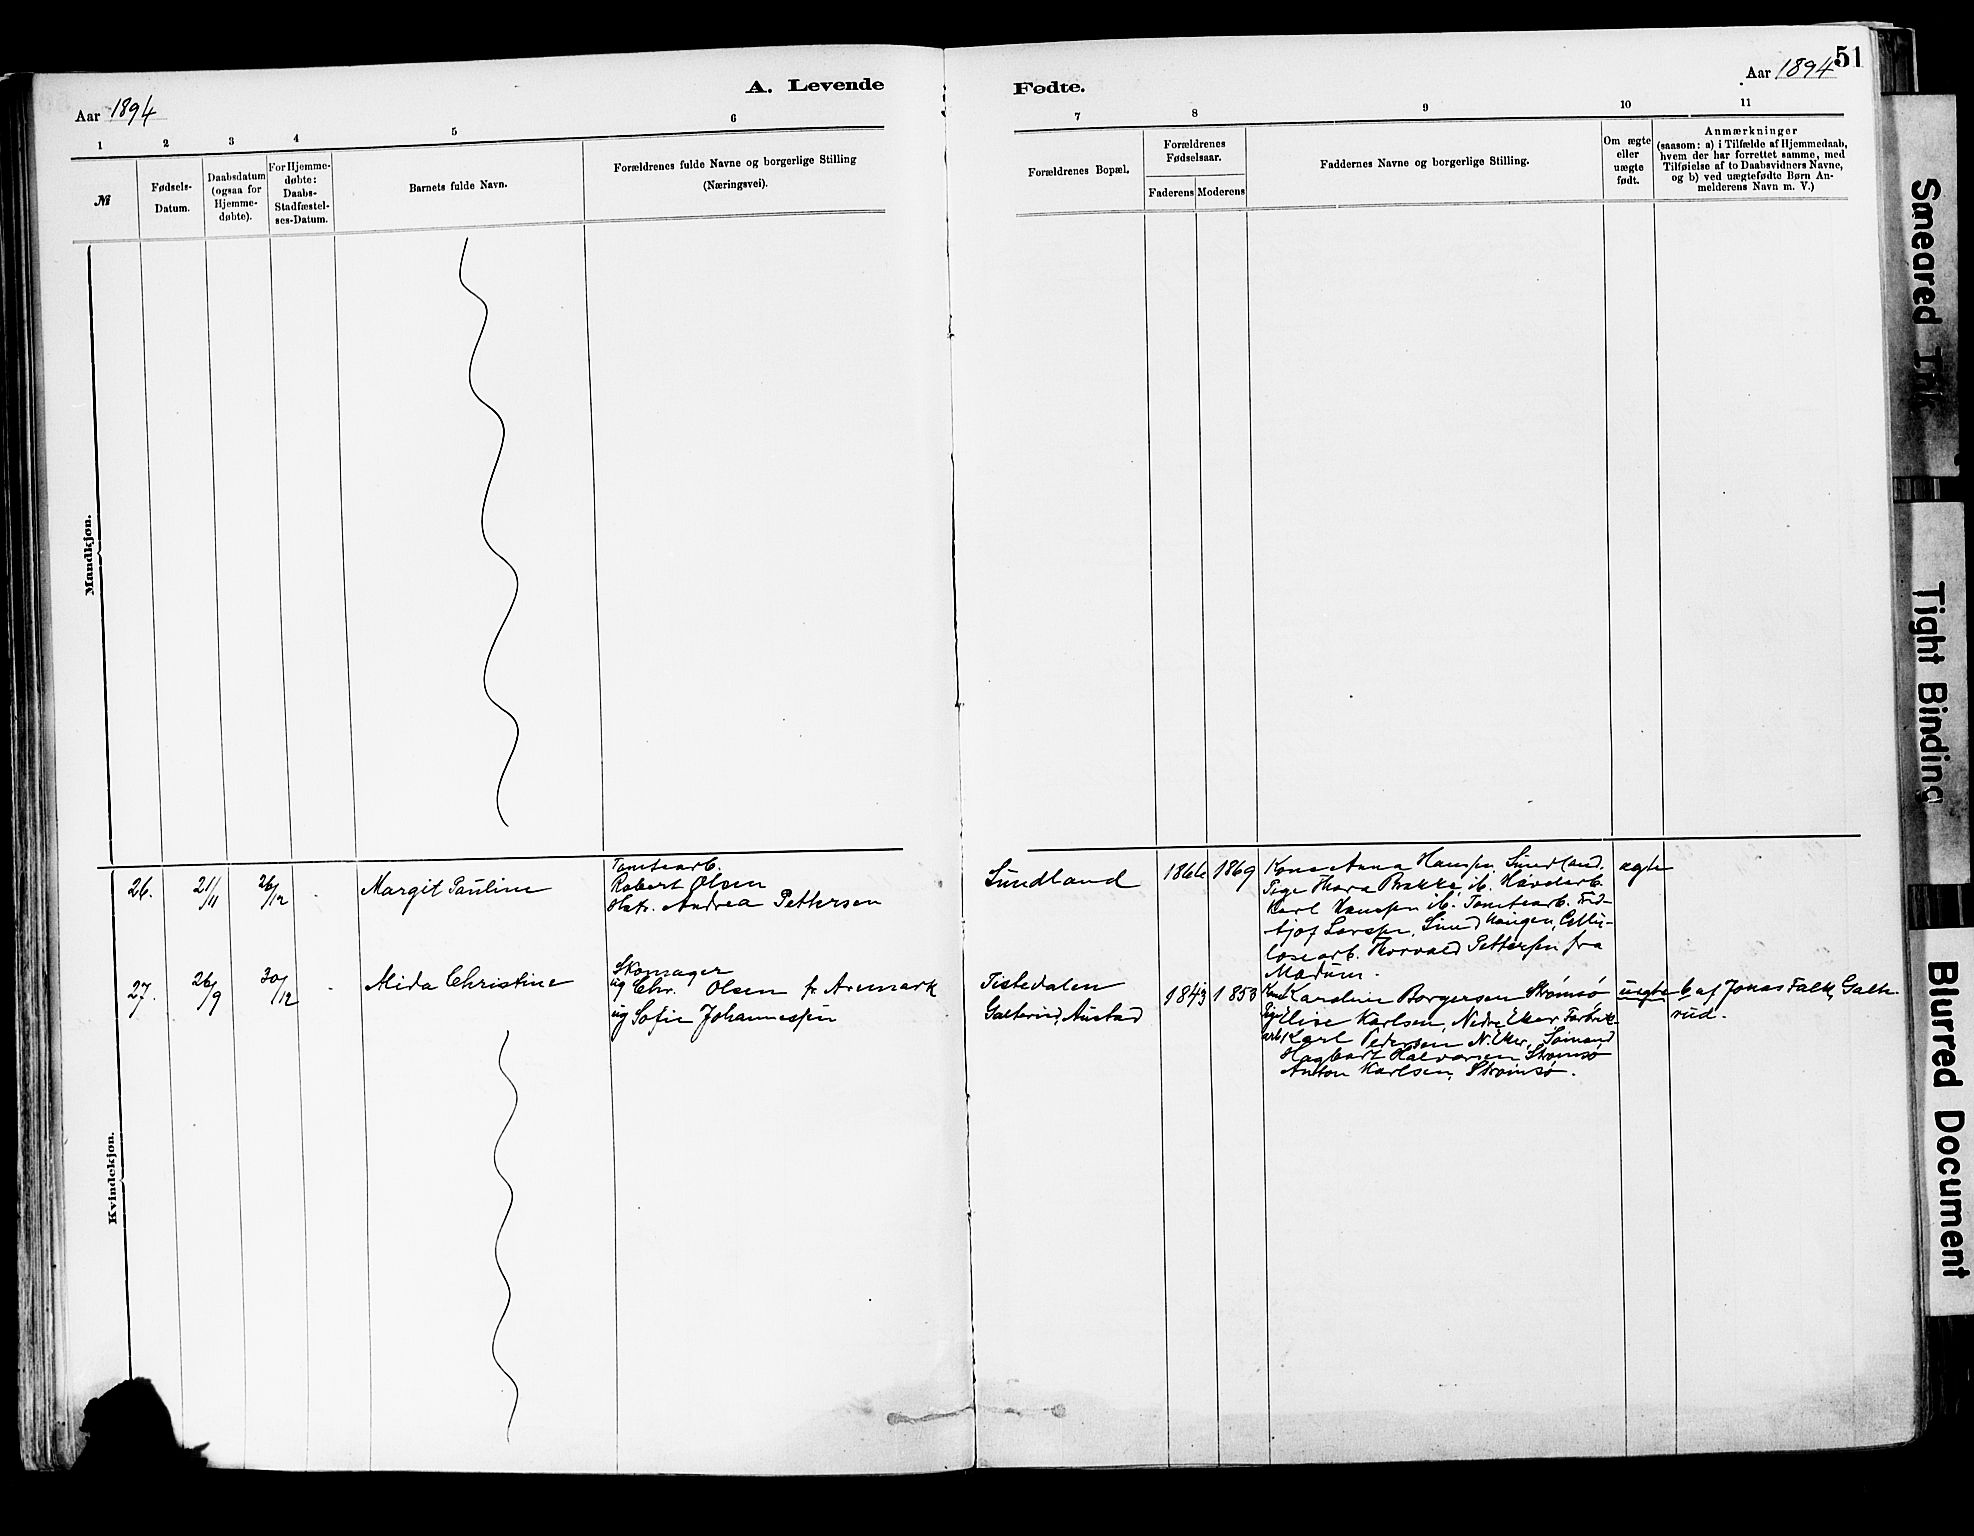 51
A. Levende Fødte.
Aar 1894
Aar 1894
1 2 3 4 5 6 7 8 9 10 11
№
Fødsels-
Datum.
Daabsdatum
(ogsaa for
Hjemme-
døbte).
For Hjemme-
døbte:
Daabs-
Stadfæstel-
ses-Datum.
Barnets fulde Navn.
Forældrenes fulde Navne og borgerlige Stilling
(Næringsvei).
Forældrenes Bopæl.
Forældrenes
Fødselsaar.
Faderens Moderens
Faddernes Navne og borgerlige Stilling.
Om ægte
eller
uægte
født.
Anmærkninger
(saasom: a) i Tilfælde af Hjemmedaab,
hvem der har forrettet samme, med
Tilføielse af to Daabsvidners Navne,
og b) ved uægtefødte Børn An-
melderens Navn m. V.)
Mandkjøn.
Kvindekjøn.
26.
21/11
26/12
Margit Pauline
Tomtearb.
Robert Olsen
Hstr. Andrea Pettersen
Sundland
1866 1869
Kone Anna Hansen, Sundland.
Pige Thora Bakke, ib.
Karl Hansen ib. Tomtearb. Frid-
tjof Larsen, Sund haugen, Cellu-
losearb. Thorvald Pettersen fra
Modum.
ægte
27.
26/9
30/12
Alida Christine
Skomager
ug Chr. Olsen fr Aremark
ug Sofie Johannesen
Tistedalen
Galterud, Austad
1843 1853
Kone Karoline Borgersen Strømsø
Pige Elise Karlsen, Nedre Eker, Fabrik-
arb. Karl Pedersen N. Eker, Sømand
Hagbart Halvorsen Strømsø
Anton Karlsen, Strømsø.
uægte
b, af Jonas Falk, Galte-
rud.
Smeared Ink
Tight Binding
Blurred Document